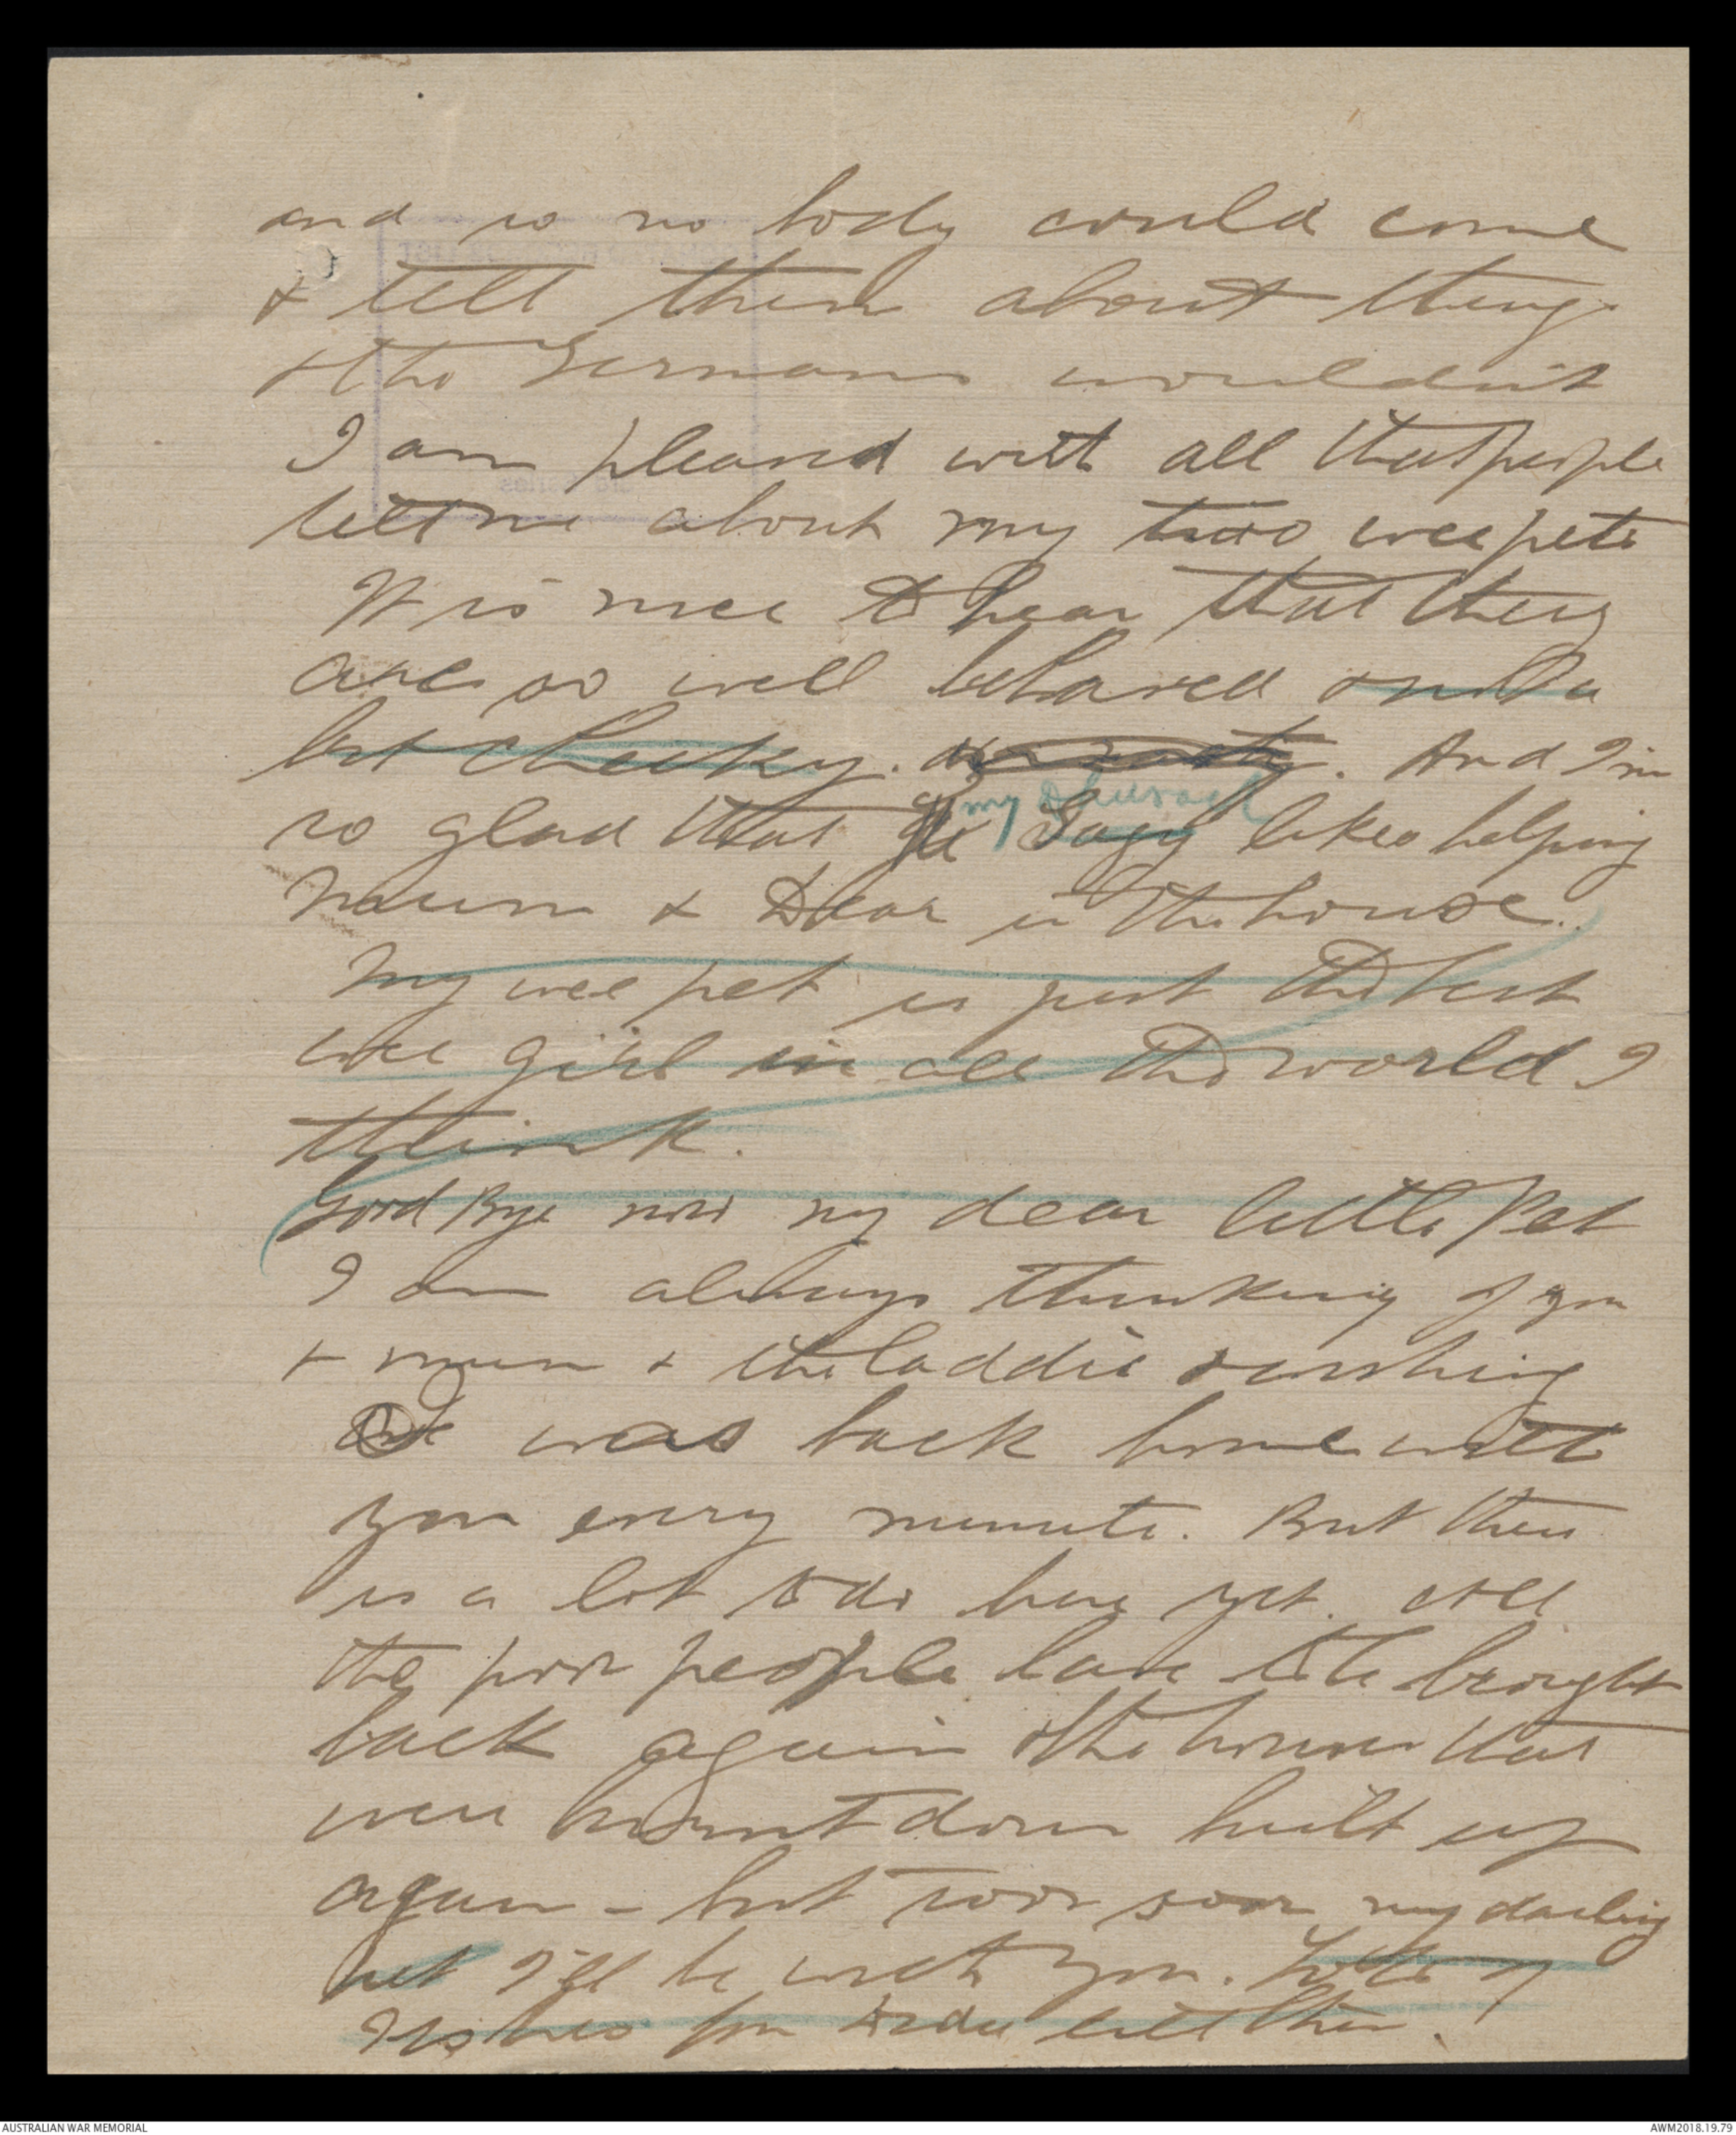 and so no body could come
& tell them about things
& the Germans wouldn't
I am pleased with all that people
tell me about my two wee pets
It is nice to hear that they
are so well behaved & not a
bit cheeky. And I'm
so glad that my likes helping
Mum & Dear in the house.
My wee pet is just the best
wee girl in all the world I
think.
Good Bye now my dear little Pet
I am always thinking of you
& mum & the laddie & wishing
I was back home with
you every minute. But there
is a lot to do here yet. All
the poor people have to be brought
back again & the houses that
were burnt down built up
again - but soon soon my darling
pet I'll be with you. Lots of
kisses for till then.
AUSTRALIAN WAR MEMORIAL
AWM2018.19.79